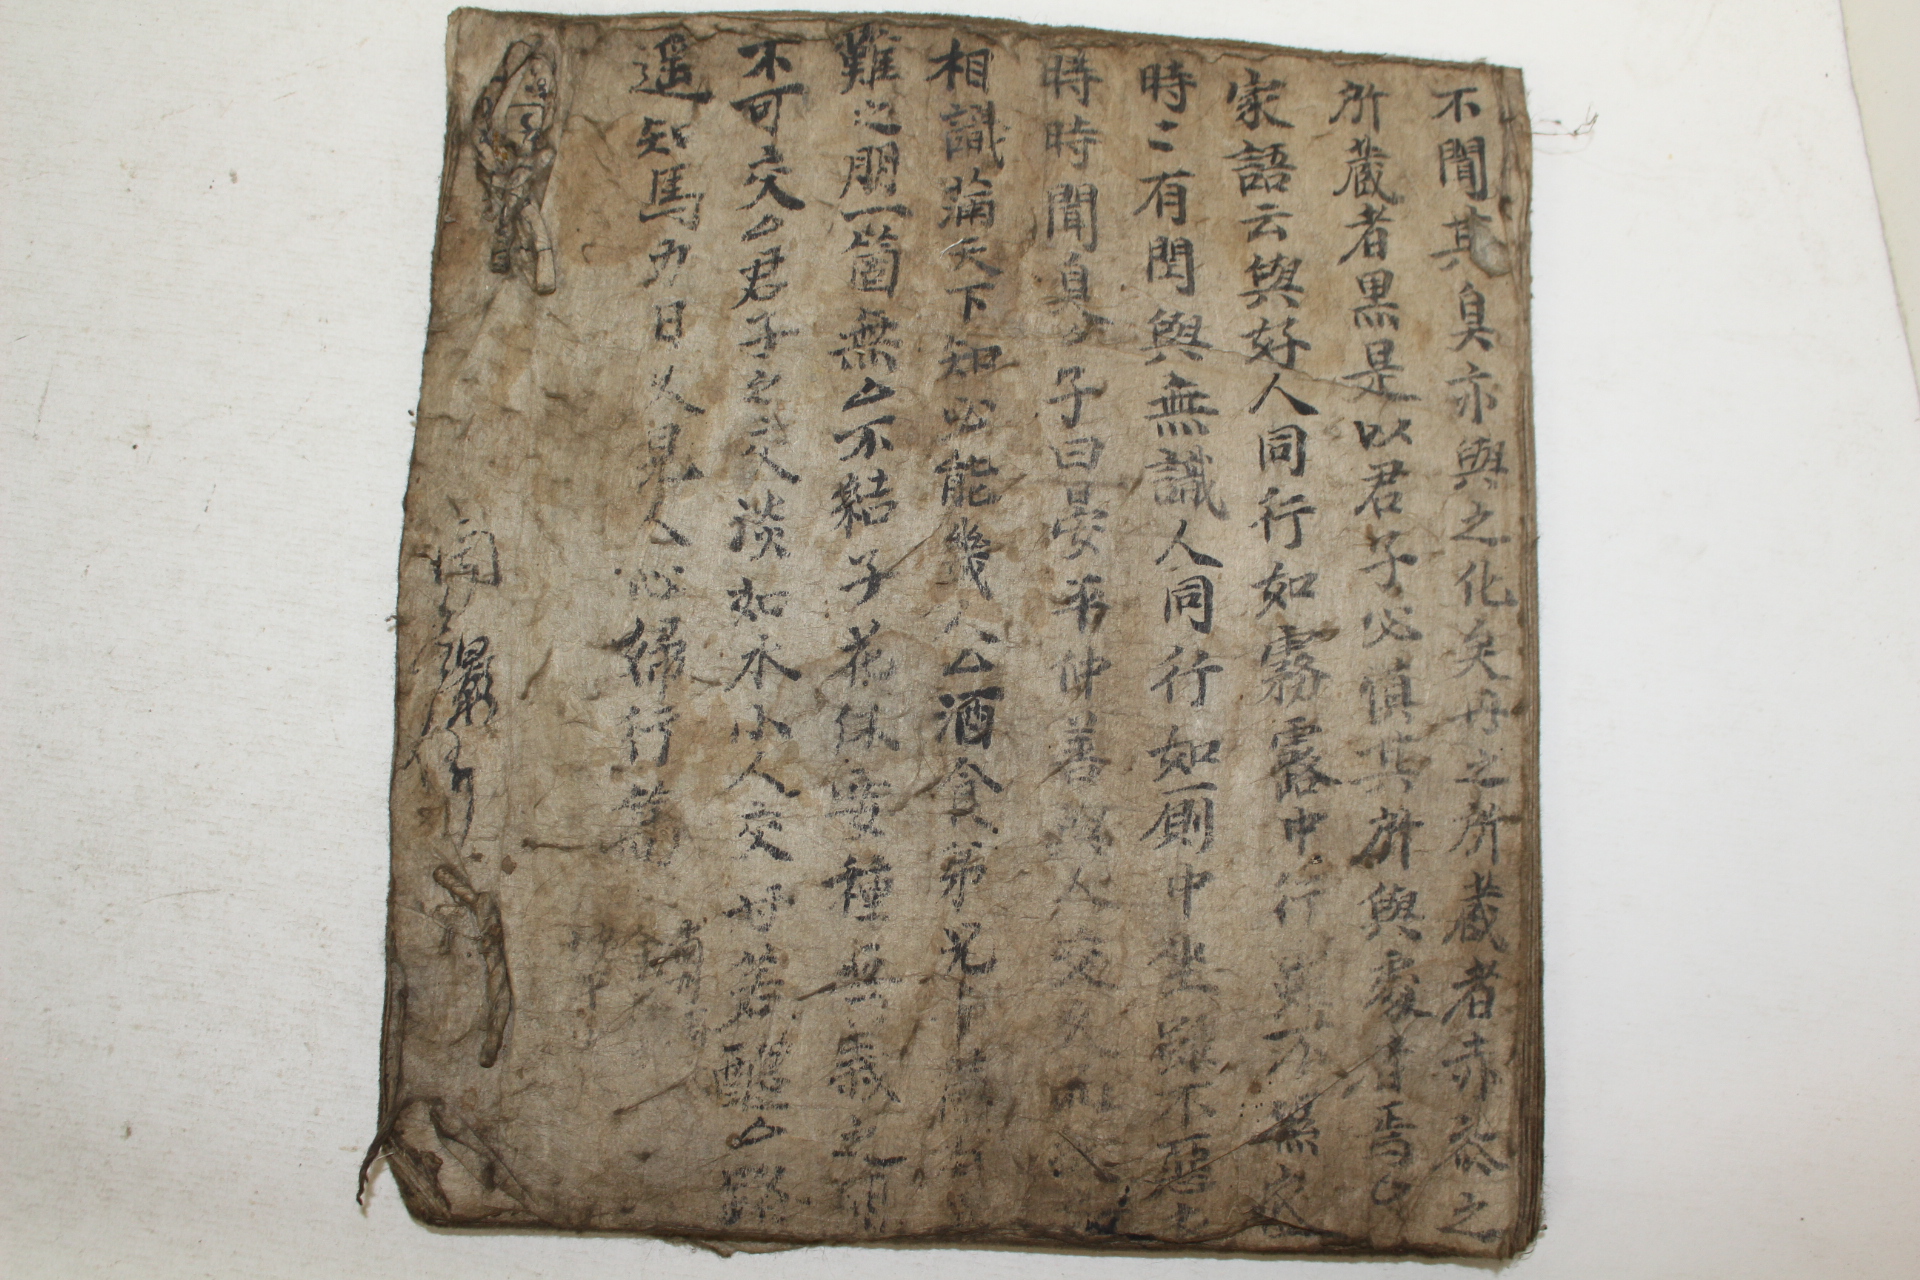 不聞其臭亦與之化矣丹之所藏者赤漆之
所藏者黑是以君子必慎其所與處者焉厶
家語云與好人同行如霧露中行雖不濕衣
時〻有閏與無識人同行如厠中坐雖不惡
時時聞臭厶子曰晏平仲善與人交久而
相識滿天下知心能幾人厶酒食弟兄千
難之朋一箇無厶不結子花休要種無義之
不可交厶君子之交淡如水小人交甘若醴厶路
遥知馬力日久見人心婦行篇